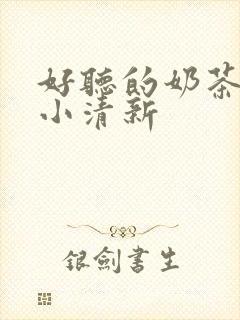 好聽的奶茶
小清新
銀劍書生